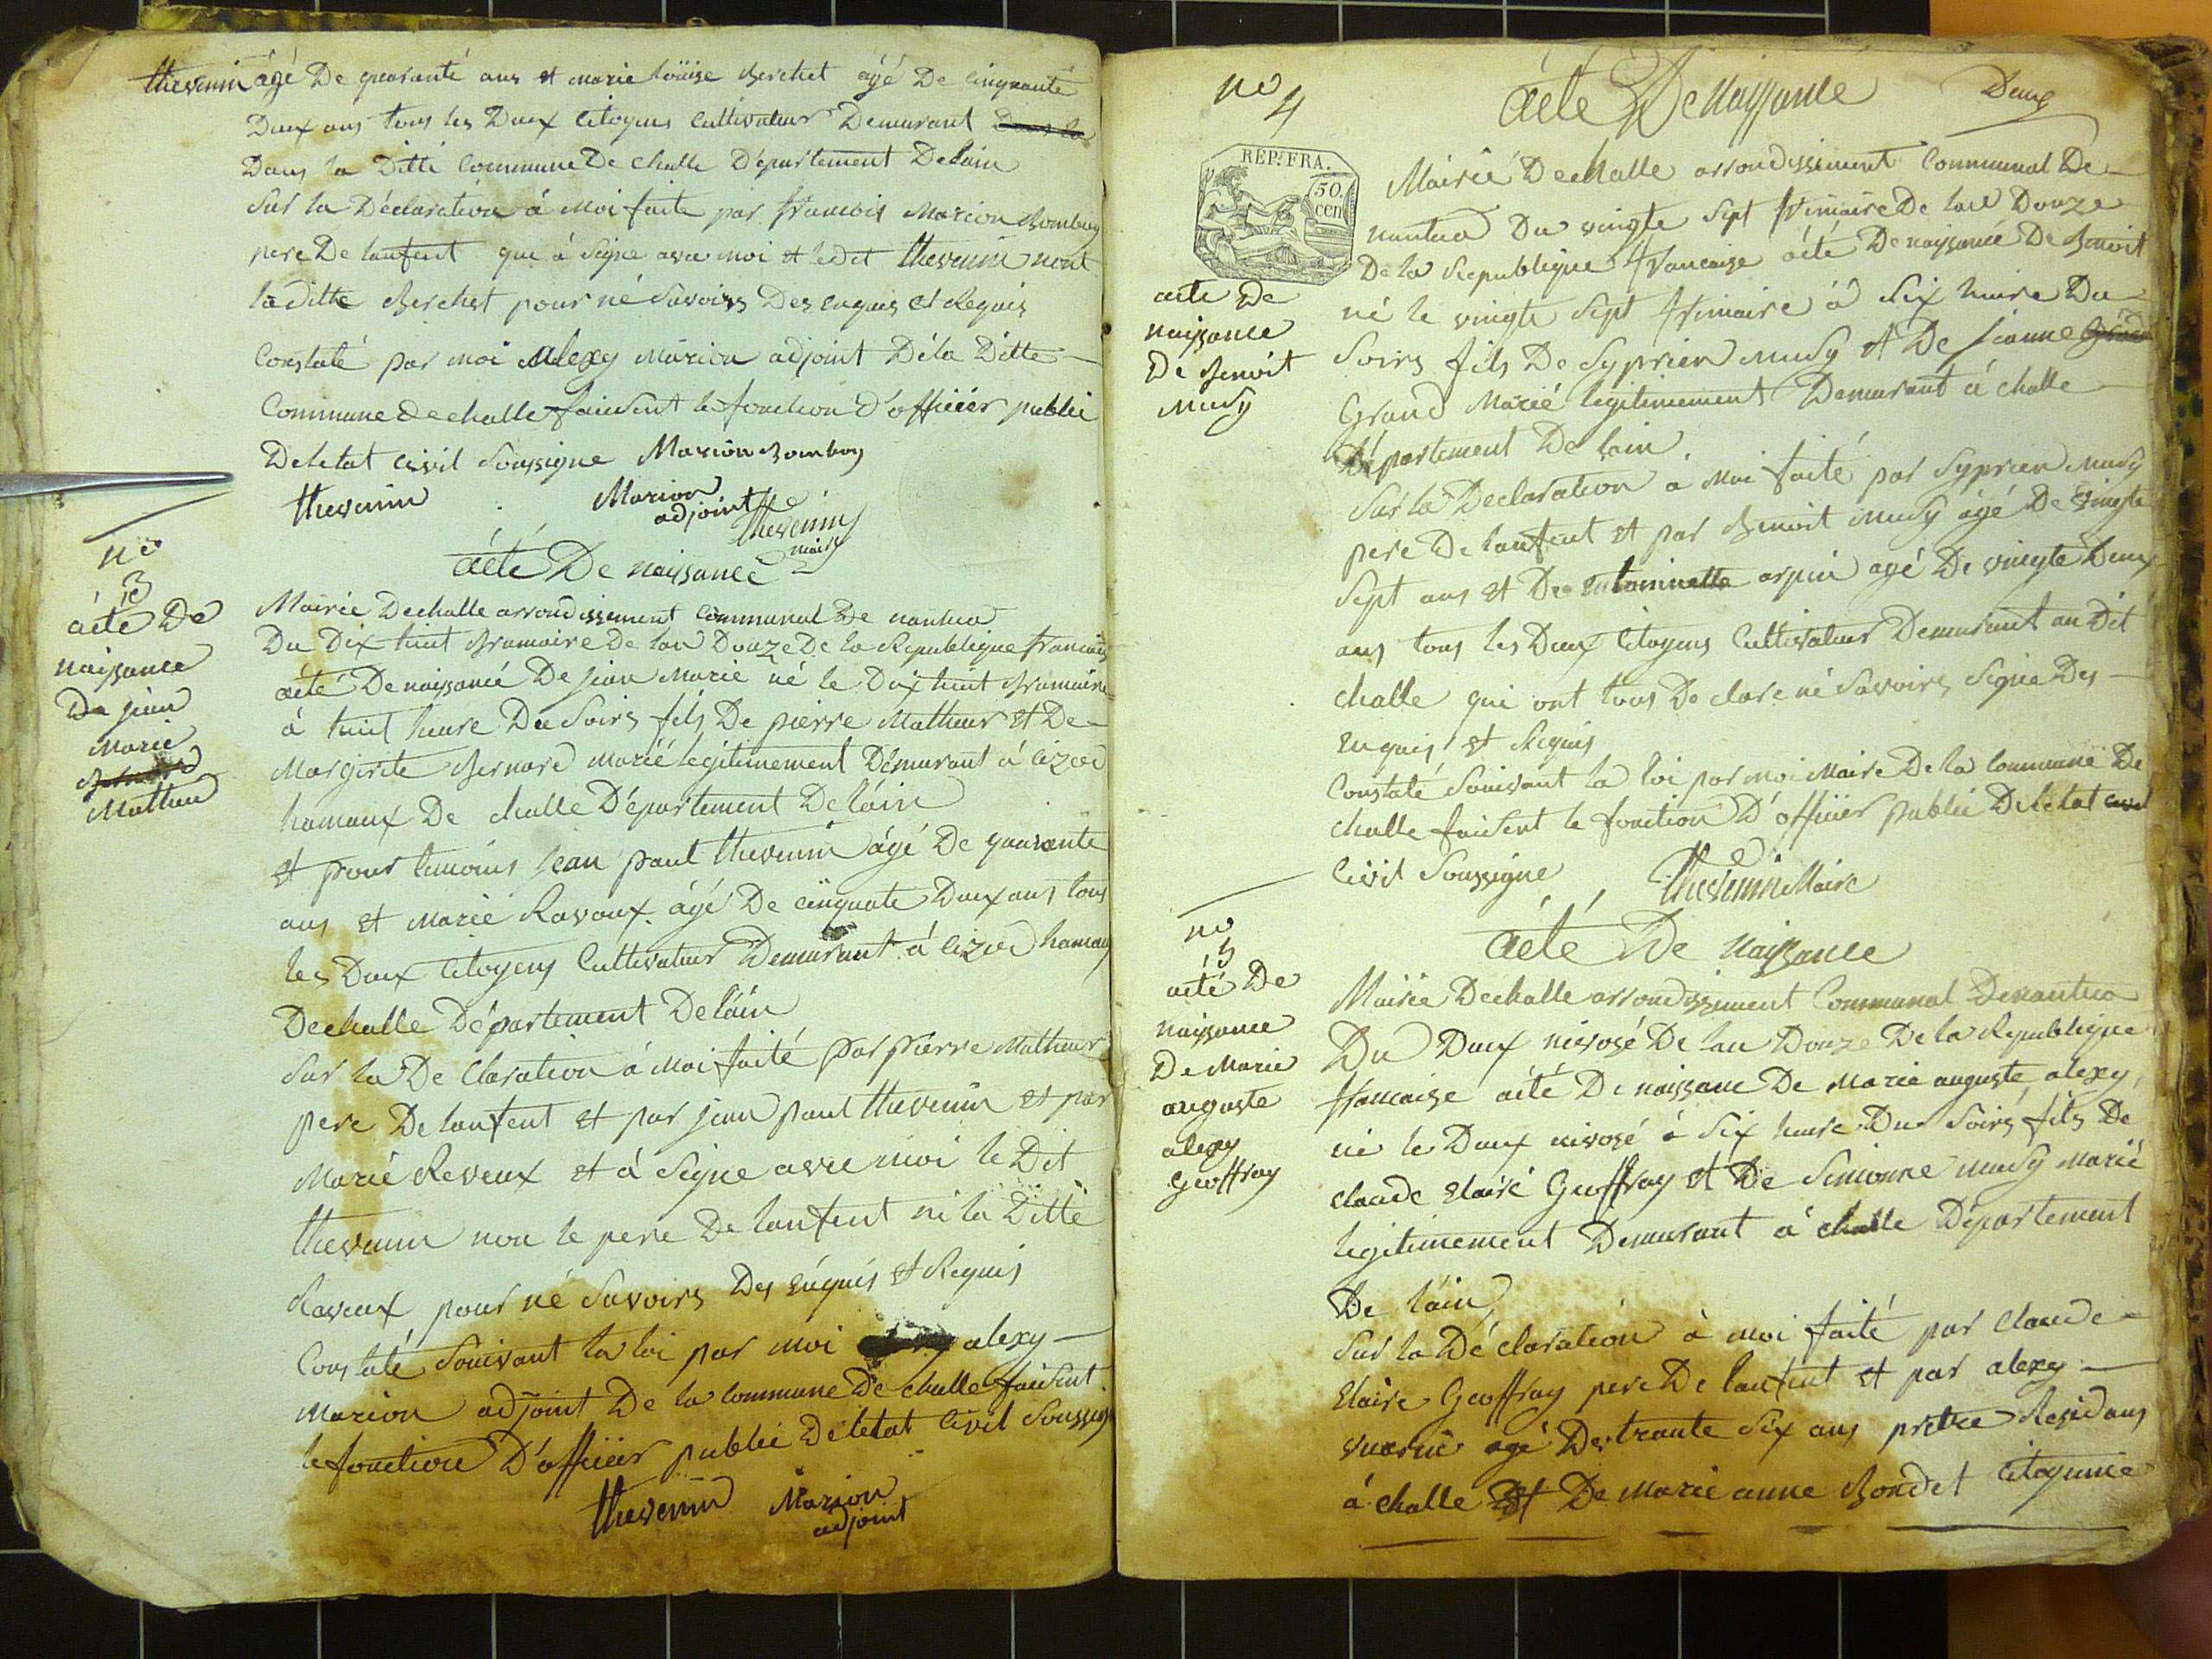 thevenin âgé De quaranté ans et marie loüise Berchet âgé De Cinquanté
Deux ans tous les Deux Citoyens Cultivateur Demurant
Dans la Ditte Commune De challe Département Delain
Sur la Déclaration à Moi faite par francois Marion Bomboy
pere De lanfent que à Signe avec moi et ledit thevenin nont
laditte Berchet pour né Savoirs Des enquis et Requis
Constaté par moi alexy Marion adjoint Déla Ditte
Commune de challe faisent le fonction d'officiér public
Deletat Civil Soussigne Marion Bomboy
thevenin Marion
adjoint
thevenin
maire
acté De naissance
no
3
acté De
naissance
De jean
Marie
Bernard
Matheu
Mairie De challe arrondissement Communal De nantua
Du Dix huit Brumaire De lan Douze De la Republique francais
acté De naissancé De Jean Marie né le Dix huit Brumaire
à huit heure Du Soirs fils De pierre Matheur et De
Margirite Bernard marié legitimement Démurant à Cizod
hamaux De challe Département De láin
et pour temoins Jean paul thevenin âgé De quarante
ans et Marie Ravoux âgé De cinquate Deux ans tous
les Deux Citoyens Cultivateur Demurant à Cizod hamaux
De challe Département De láin
Sur la De Claration à Moi faité par pierre Matheur
pere De lanfent et par jean paul thevenin et par
Marié Reveux et à Signe avec moi le Dit
thevenin non le pere De lanfent ni la Ditté
Raveux pour né Savoirs Des Enquis et Requis
Constaté Souivant la loi par moi alexy
Marion adjoint De la Commune De challe faisent
le fonction D'officiér public Deletat Civil Soussigne
thevenin Marion
adjoint
no
4
acte De Naissance Deux
REP. FRA.
50.
cen
acte De
naissance
De Benoit
Musy
Mairié De challe arrondissement Communal De
nantua Du vingte Sept frimaire De lan Douze
De la Republique francaise acté De naissance De Benoit
né le vingte Sept frimaire à Six heure Du
Soirs fils De Syprien Musy et De jeanne
Grand Marié legitimement Demurant à challe
Département De lain
Sur la Declaration à Moi faité par Syprien Musy
pere De lanfent et par Benoit Musy âgé De vingte
Sept ans et De antoinette arpin agé De vingte Deux
ans tous les Deux Citoyens Cultivateur Demurant au Dit
challe qui ont tous De clare né Savoirs Signe Des
enquis et Requis
Constaté Souivant la loi par moi Maire De la Commune De
challe faisent le fonction D'officiér public Deletat civil
Civil Soussigne thevenin Maire
acté De naissance
no
5
acté De
naissance
De Marie
auguste
alexy
Geoffray
Mairie De challe arrondissement Communal De nantua
Du Deux nivosé De lan Douze De la Republique
francaise acté De naissanc De Marie auguste alexy,
né le Deux nivosé à Six heure Du Soirs fils De
claude Elairé Geoffray et De Simonne Musy Marié
legitimement Demurant à challe Département
De láin
Sur la Dé claration à moi faité par Claude
Elaire Geoffray pere De lanfent et par alexy
âgé De trante Six ans prêtre Residans
à challe et De Marie anne Bondet Citoyenne